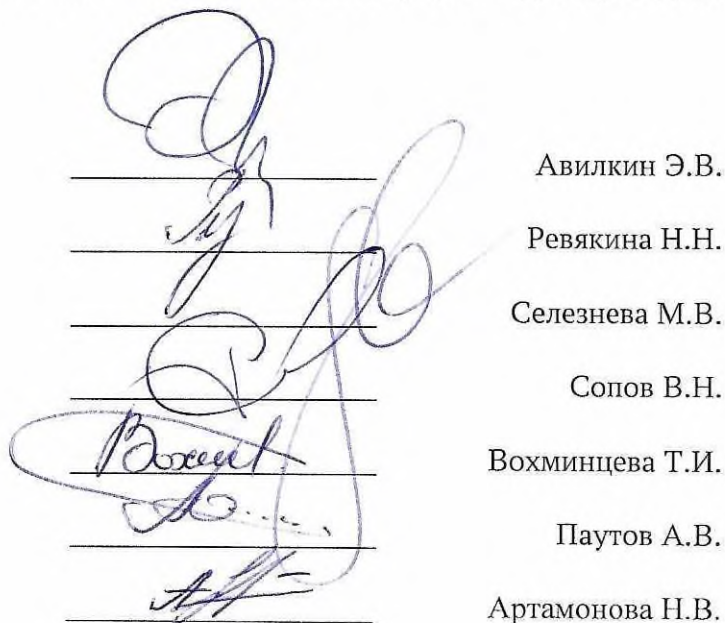 Авилкин Э.В.
Ревякина Н.Н.
Селезнева М.В.
Сопов В.Н.
Вохминцева Т.И.
Паутов А.В.
Артамонова Н.В.